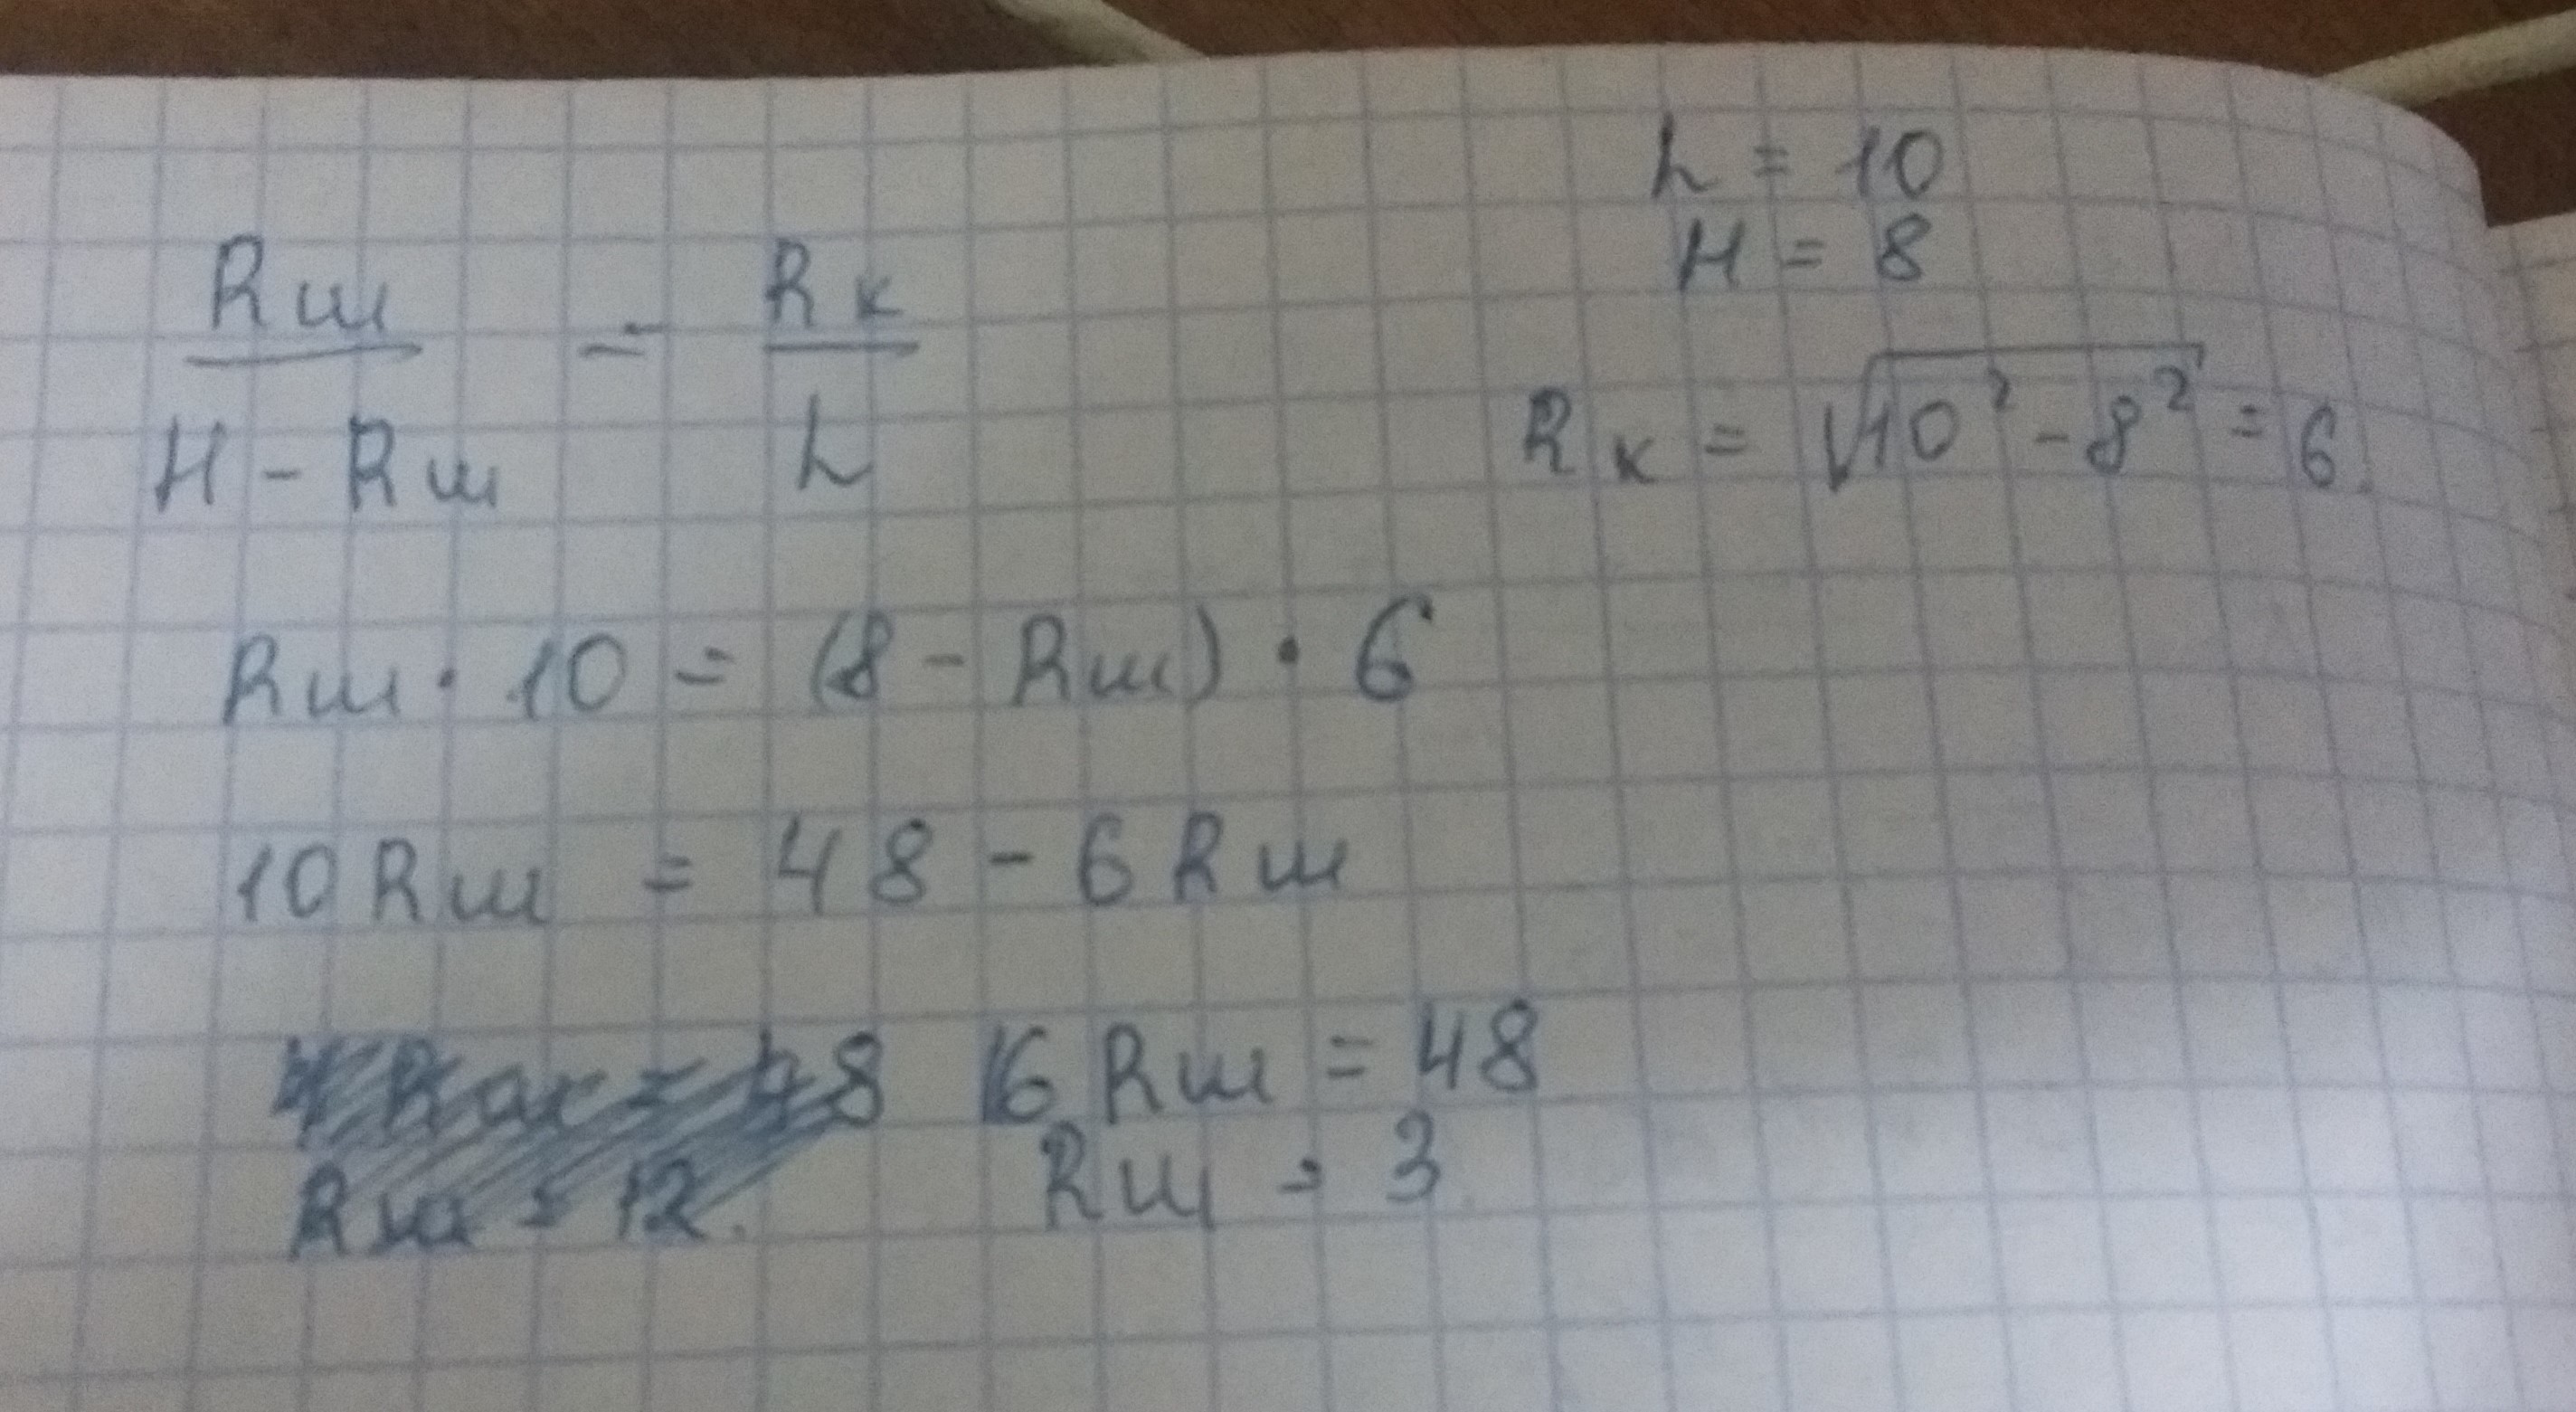 L = 10
H = 8
Rш / (H - Rш) = Rк / L
Rк = √(10² - 8²) = 6.
Rш · 10 = (8 - Rш) · 6
10 Rш = 48 - 6 Rш
16 Rш = 48
Rш = 12.
Rш = 3